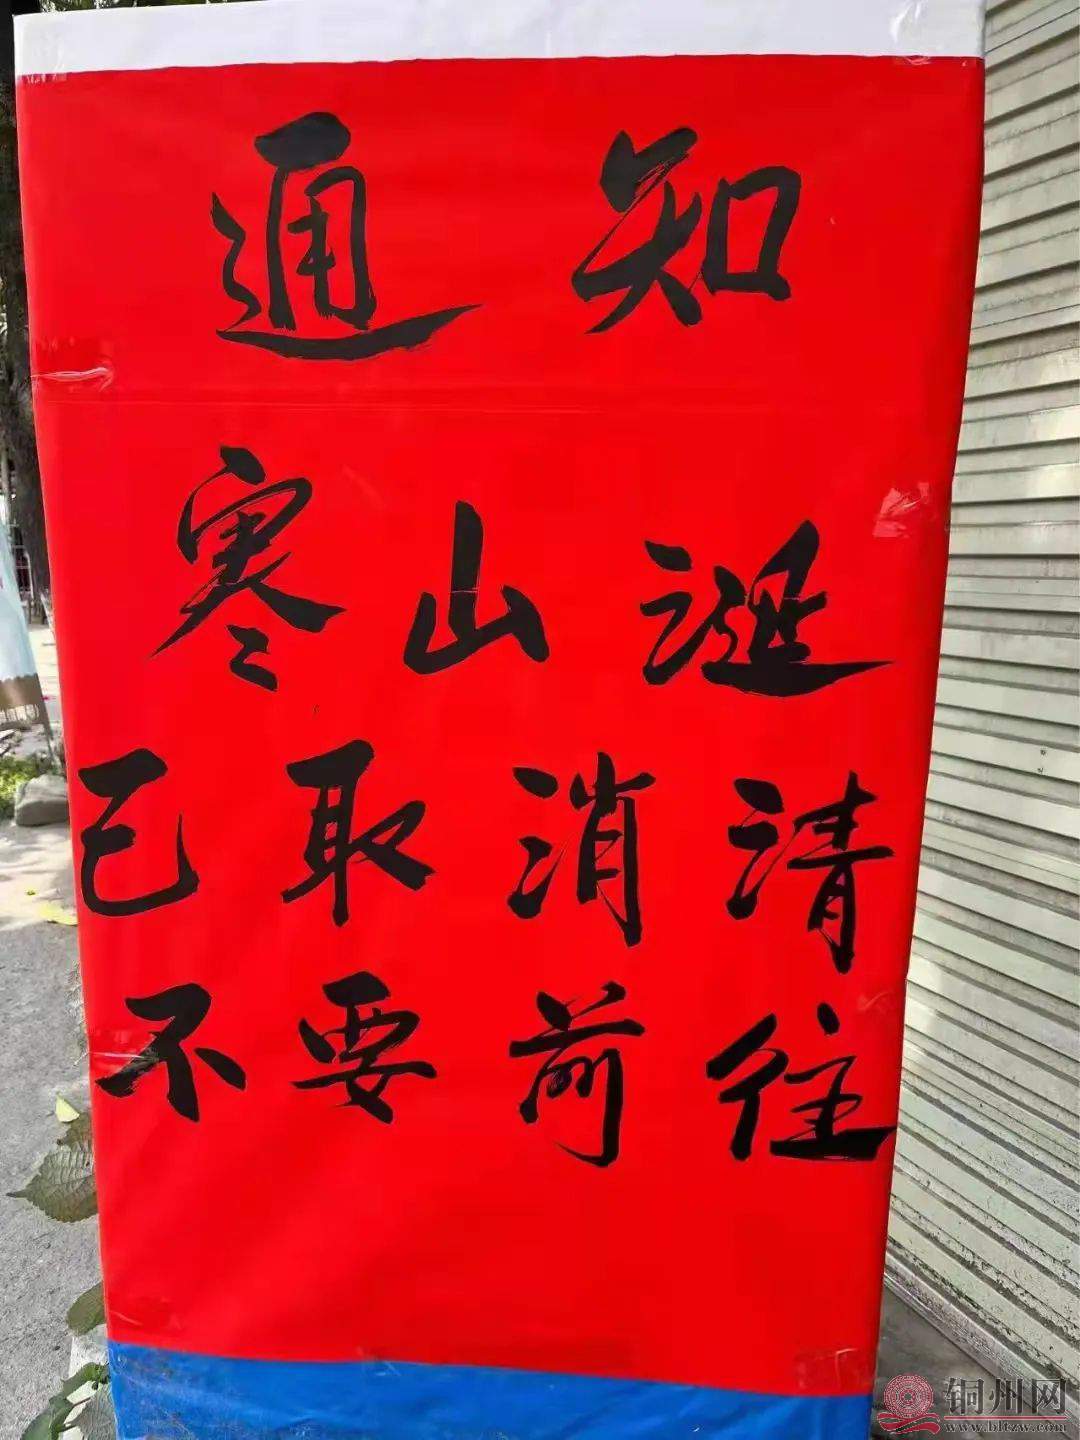 通知
寒山诞
已取消请
不要前往
铜州网
www.bltzw.com